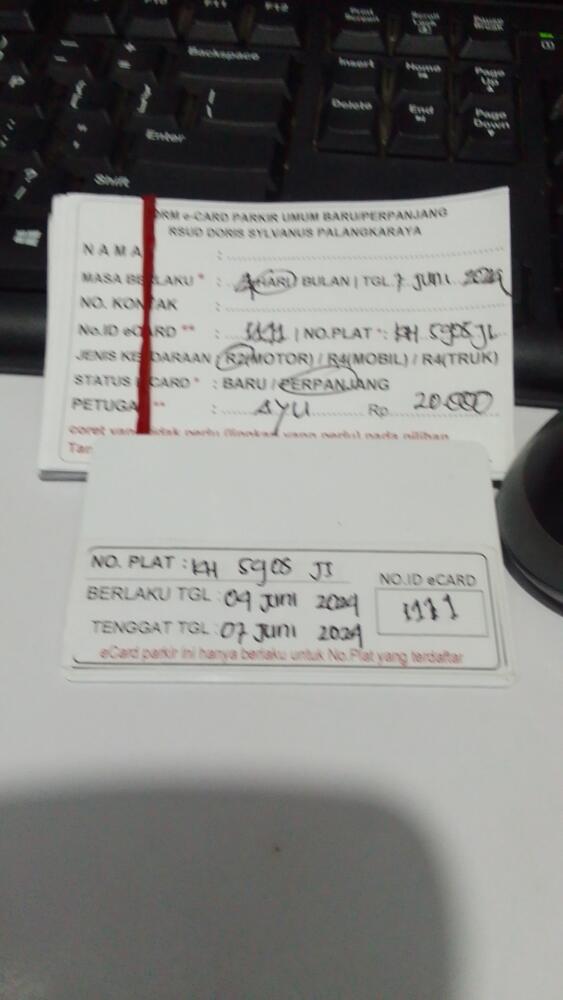 Print Screen
Scroll Lock
Pause Break
Backspace
Insert
Home
Page Up
Delete
End
Page Down
Enter
Shift
ORM e-CARD PARKIR UMUM BARU/PERPANJANG
RSUD DORIS SYLVANUS PALANGKARAYA
NAMA :
MASA BERLAKU * : HARI / BULAN | TGL. 7 JUNI 2024
NO. KONTAK :
No.ID eCARD ** : 1111 | NO.PLAT *: KH 5905 JL
JENIS KENDARAAN (R2(MOTOR) / R4(MOBIL) / R4(TRUK)
STATUS eCARD * : BARU / PERPANJANG
PETUGAS ** : AYU Rp. 20.000
coret yang tidak perlu (lingkari yang perlu) pada pilihan
NO. PLAT : KH 5905 JI
NO.ID eCARD
BERLAKU TGL : 04 JUNI 2024
1111
TENGGAT TGL : 07 JUNI 2024
eCard parkir ini hanya berlaku untuk No.Plat yang terdaftar